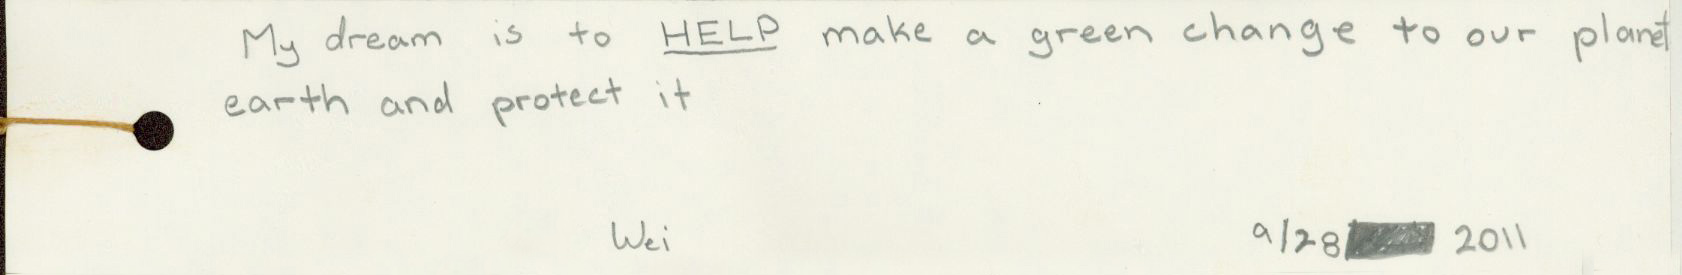 My dream is to HELP make a green change to our planet
earth and protect it
Wei 9/28 2011